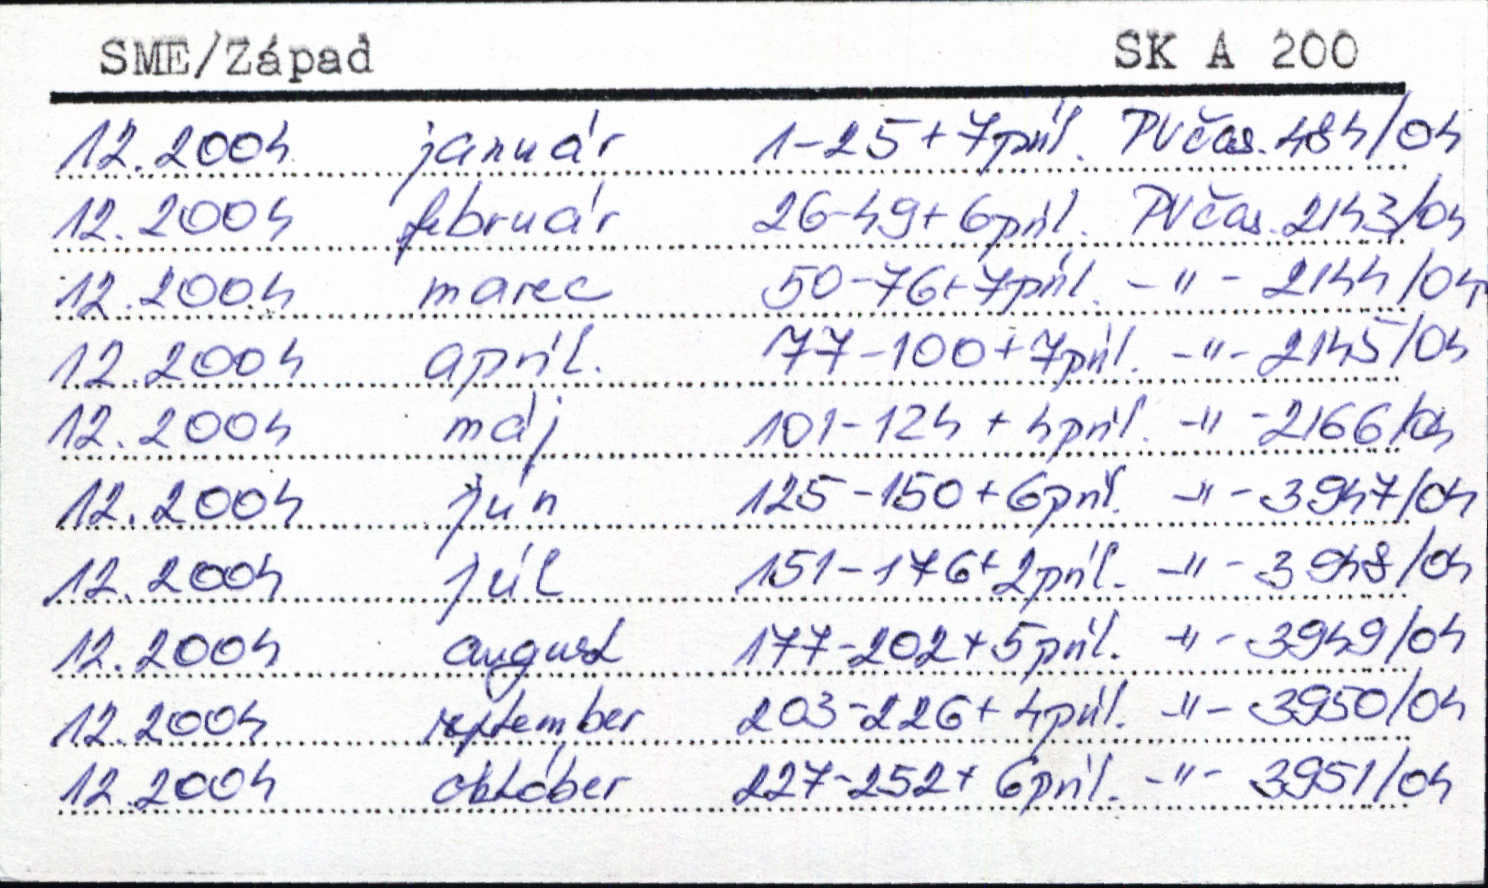 SME/Západ SK A 200
12.2004 január 1-25+7príl. PVčas.484/04
12.2004 február 26-49+6príl. PVčas.2143/04
12.2004 marec 50-76+7príl. -"- 2144/04
12.2004 apríl. 77-100+7príl. -"- 2145/04
12.2004 máj 101-124+4príl. -"- 2166/04
12.2004 jún 125-150+6príl. -"- 3947/04
12.2004 júl 151-176+2príl. -"- 3948/04
12.2004 august 177-202+5príl. -"- 3949/04
12.2004 september 203-226+4príl. -"- 3950/04
12.2004 október 227-252+6príl. -"- 3951/04